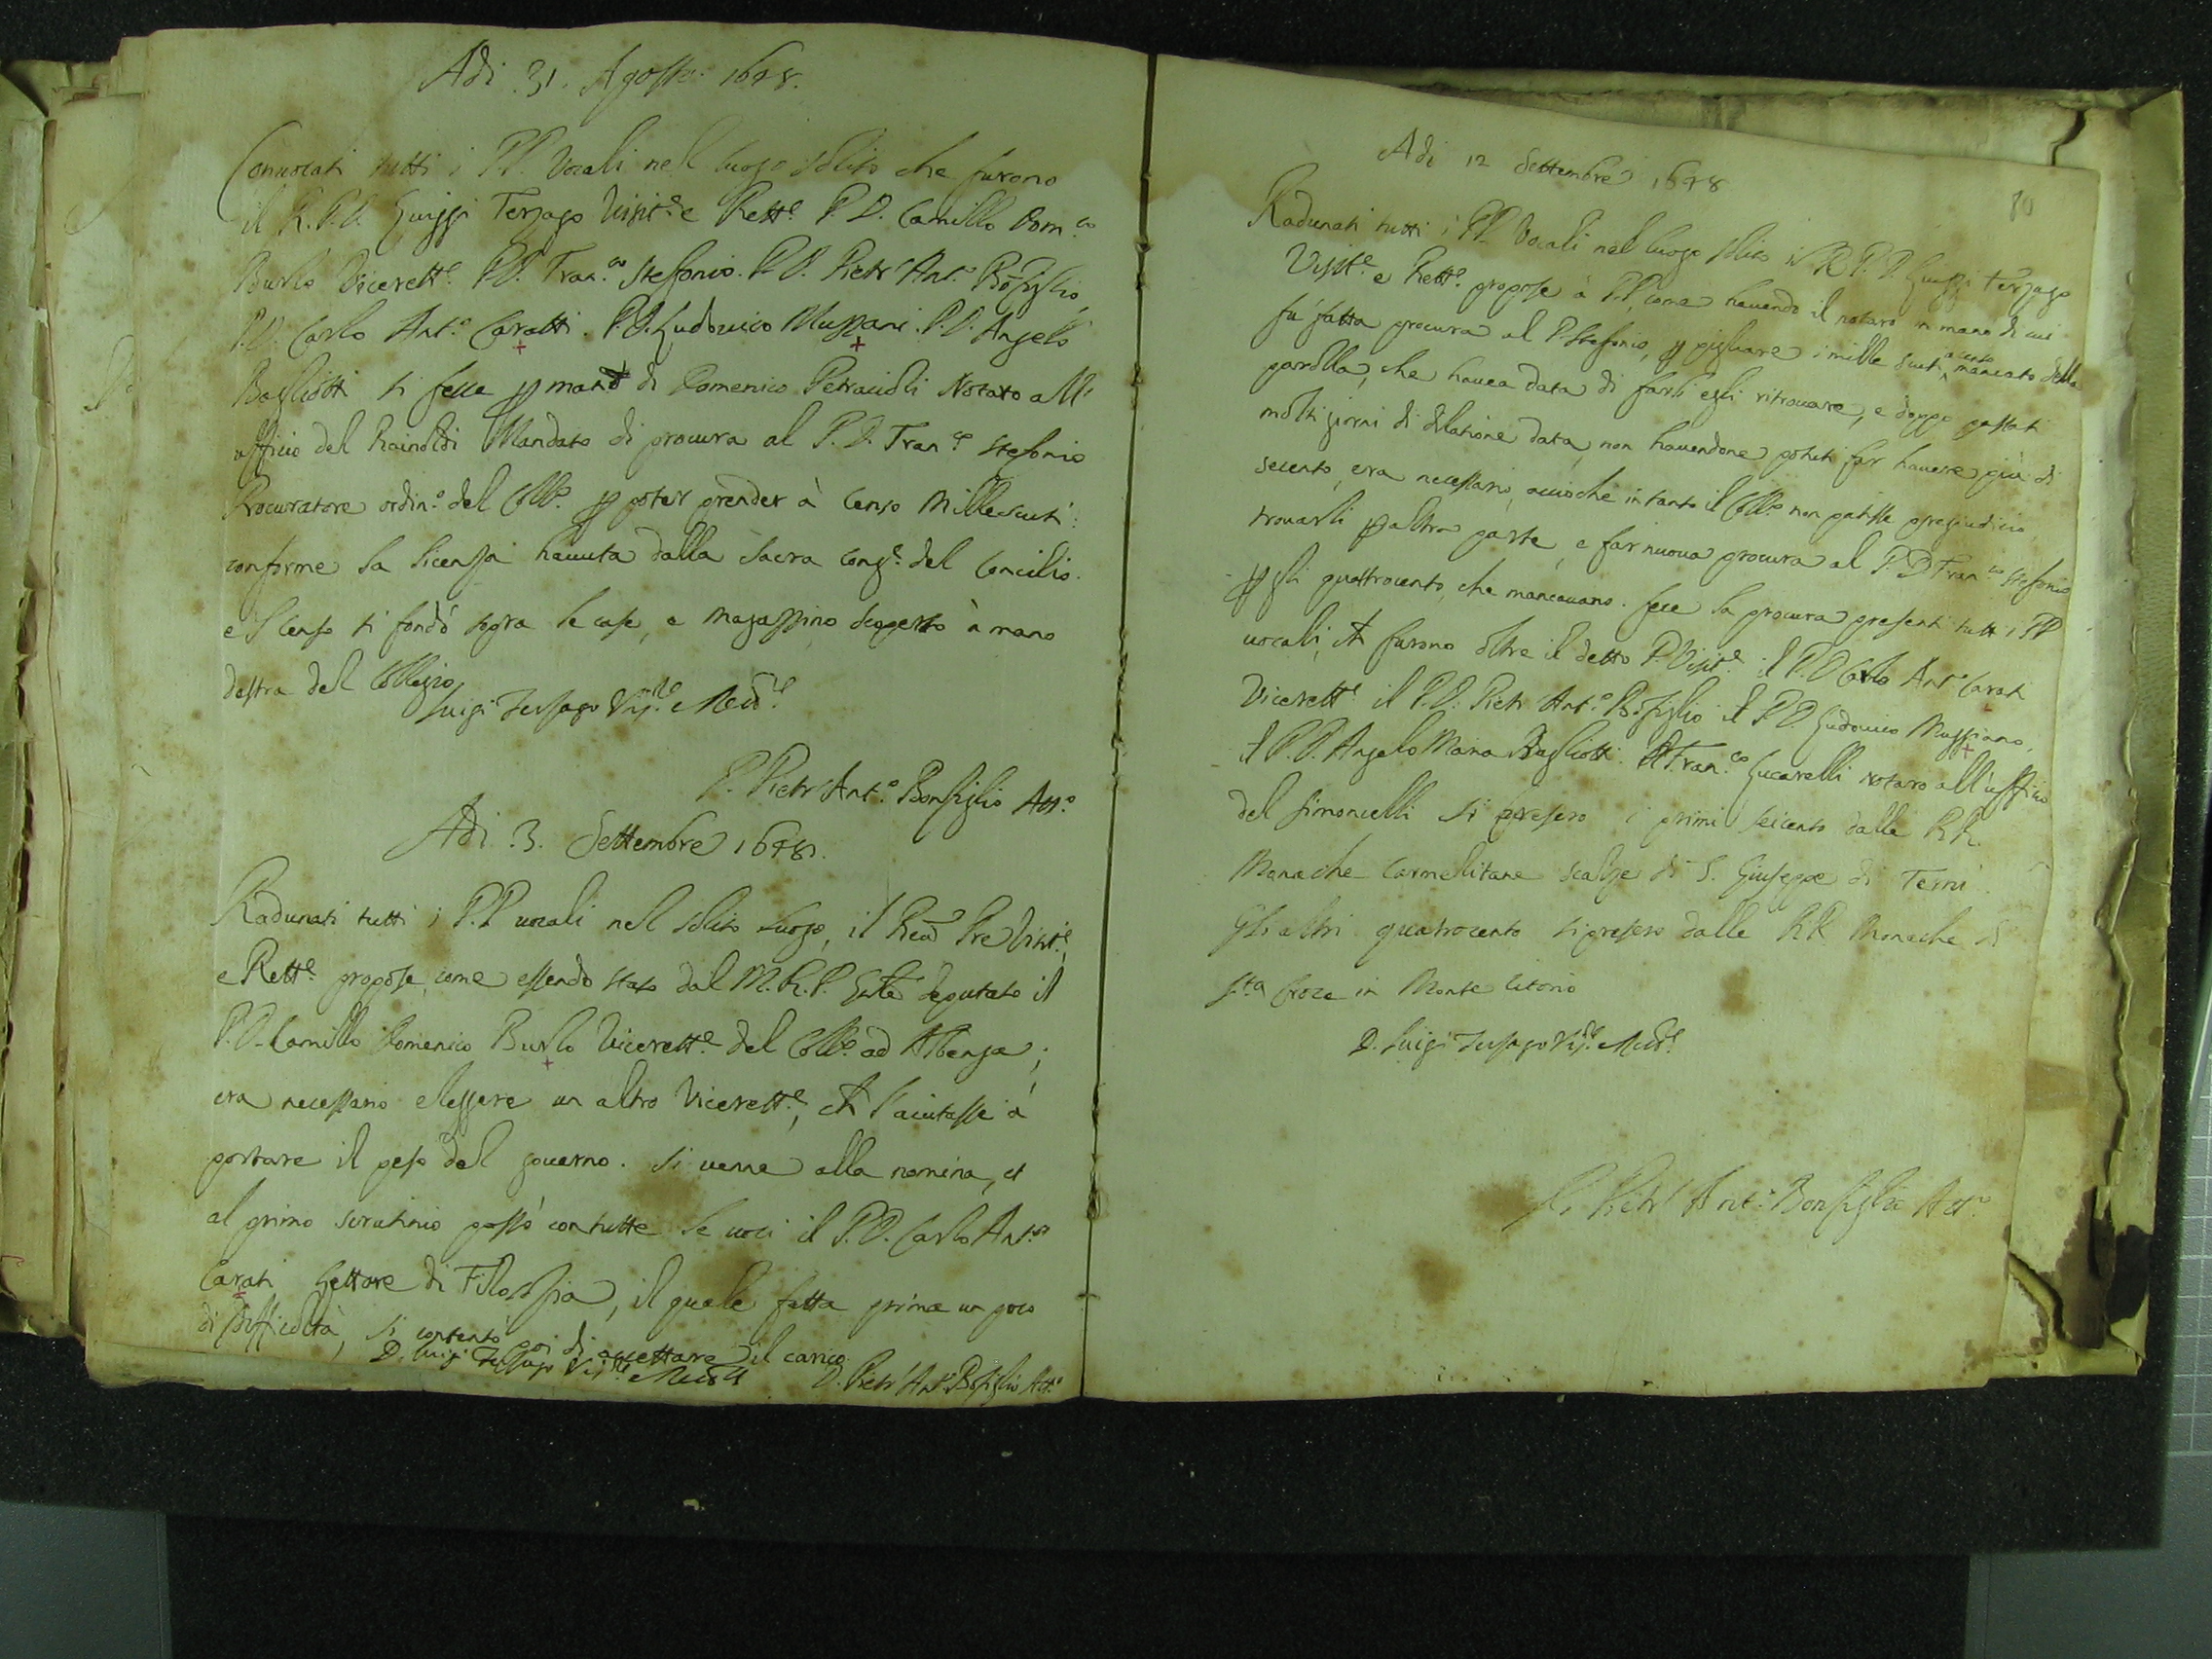 Adi 31. Agosto 1648.
Convocati tutti i PP. Vocali nel luogo solito che furono
il R.P.D. Luiggi Terzago Visit.e e Rett.e P.D. Camillo Dom.co
Burlo Vicerett.e P.D. Fran.co Stefonio. P.D. Pietr'Ant.o Bōfiglio,
P.D. Carlo Ant.o Caratti. P.D. Ludovico Muzzani. P.D. Angelo
Bagliotti si fece p mano di Domenico Petrucioli Notaro all'
officio del Rainoldi Mandato di procura al P.D. Fran.co Stefonio
Procuratore ordin.o del Coll.o p poter prender à censo Mille scuti
conforme la licenza havuta dalla Sacra Cong.e del Concilio.
e'l censo si fondò sopra le case, e magazzino scoperto à mano
destra del Collegio,
Luigi Terzago Vis.re e Red.re
P. Pietr'Ant.o Bonfiglio Att.o
Adi 3. Settembre 1648.
Radunati tutti i P.P. vocali nel solito luogo, il Reud Pre Visit.e,
e Rett.e propose, come essendo stato dal M.R.P. Gnle deputato il
P.D. Camillo Domenico Burlo Vicerett.e del Coll.o ad Albenga;
era necessario eleggere un altro Vicerett.e, ch l'aiutasse à
portare il peso del governo. Si venne alla nomina, et
al primo scrutinio passò con tutte le voci il P.D. Carlo Ant.o
Carati Lettore di Filosofia, il quale fatta prima un poco
di difficoltà, si contentò poi di accettare il carico.
D. Luigi Terzago Vis.re e Red.re D. Pietr'Ant.o Bōfiglio Att.o
80
Adi 12 Settembre 1648
Radunati tutti i PP. Vocali nel luogo solito il R.P.D. Luiggi Terzago
Visit.e e Rett.e propose à P.P. come havendo il notaro in mano di cui
fu fatta procura al P. Stefonio, p pigliare i mille scuti a censo mancato della
parolla, che havea data di farli egli ritrovare, e doppo passati
molti giorni di dilatione data, non havendone potuti far havere più di
secento, era necessario, accioché in tanto il Coll.o non patisse pregiudicio,
trovarli p altra parte, e far nuova procura al P.D. Fran.co Stefonio
p gli quattrocento, che mancavano. fece la procura presenti tutti i PP
vocali, ch furono oltre il detto P. Visit.e il P.D. Carlo Ant.o Carati
Vicerett.e il P.D. Pietr'Ant.o Bōfiglio il P.D. Ludovico Muzziano,
il P.D. Angelo Maria Bagliotti. A Fran.co Lucarelli notaro all'uffitio
del Simoncelli si presero i primi seicento dalle RR.
Monache Carmelitane scalze di S. Giuseppe di Terni.
Gli altri quatrocento si presero dalle RR Monache di
S.ta Croce in Monte Citorio
D. Luigi Terzago Vis.re e Red.re
P. Pietr'Ant.o Bonfiglio Att.o